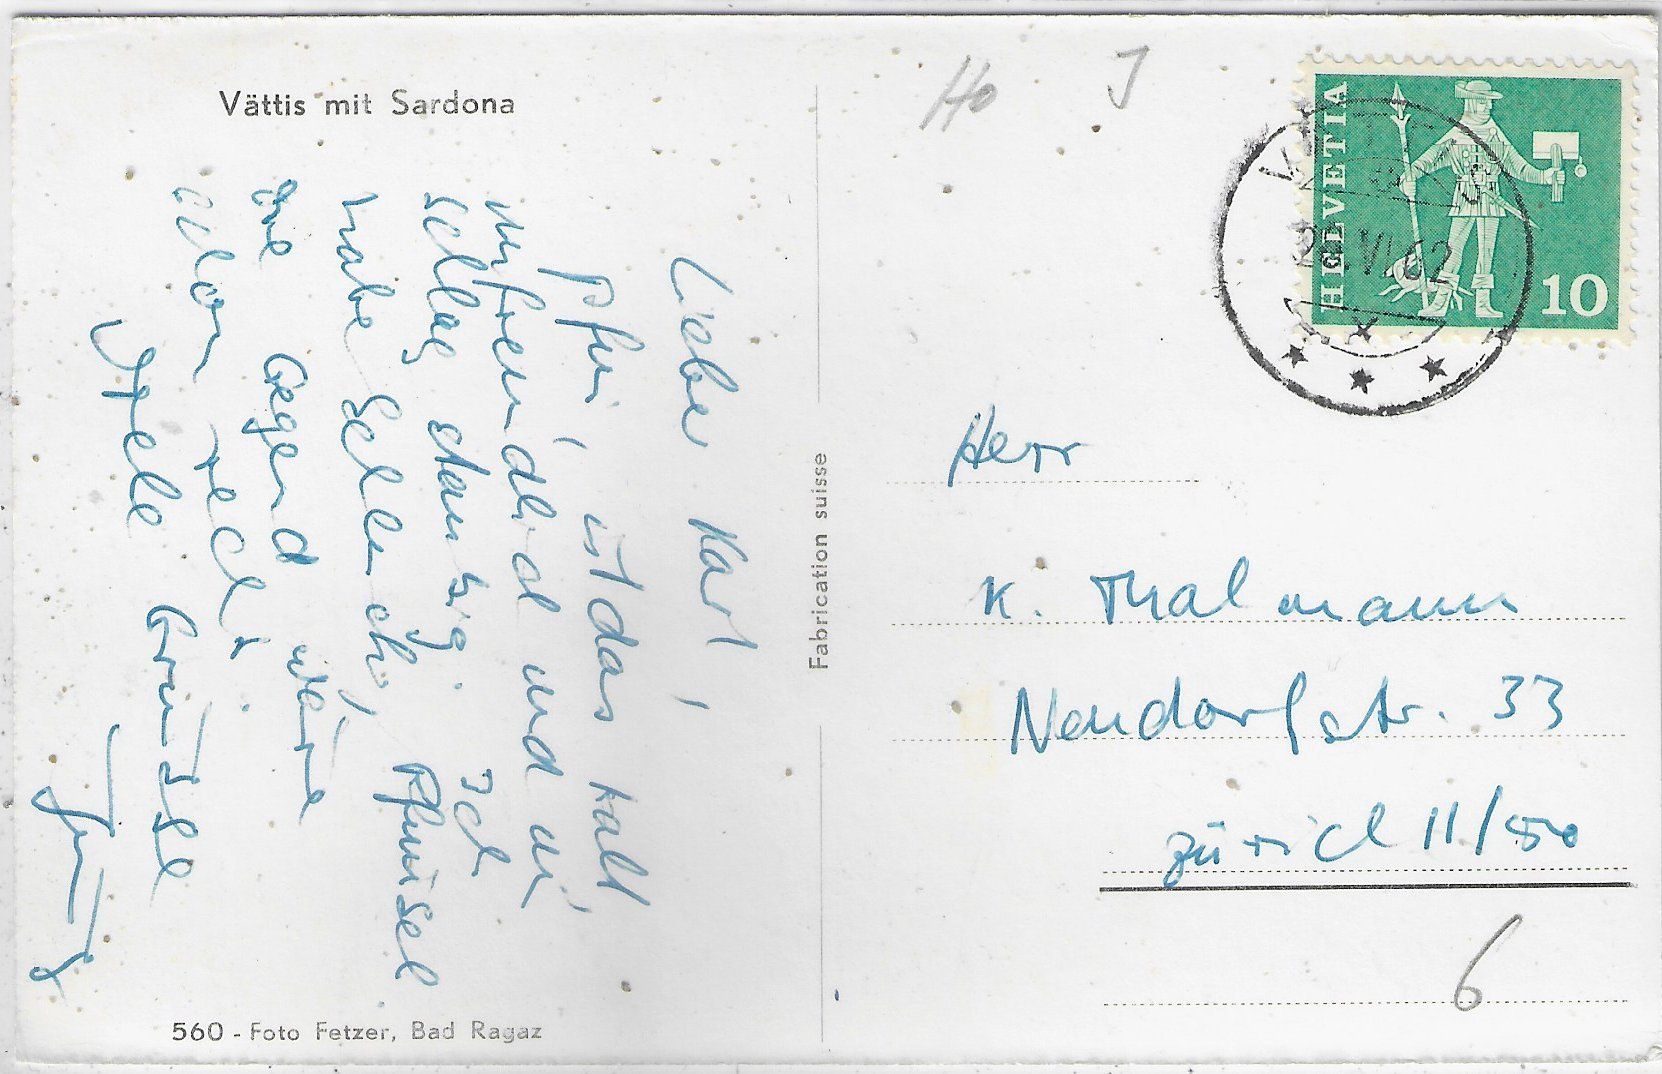 Vättis mit Sardona
Lieber Karl,
Pfui, ist das kalt
unfreundlich und un-
Ich
habe Pfnüsel
die Gegend wäre
schon recht.
Viele Grüsse
560 - Foto Fetzer, Bad Ragaz
Fabrication suisse
Ho J
HELVETIA
10
VI 62
Herr
K. Thalmann
Neudorfstr. 33
Zürich 11/50
6